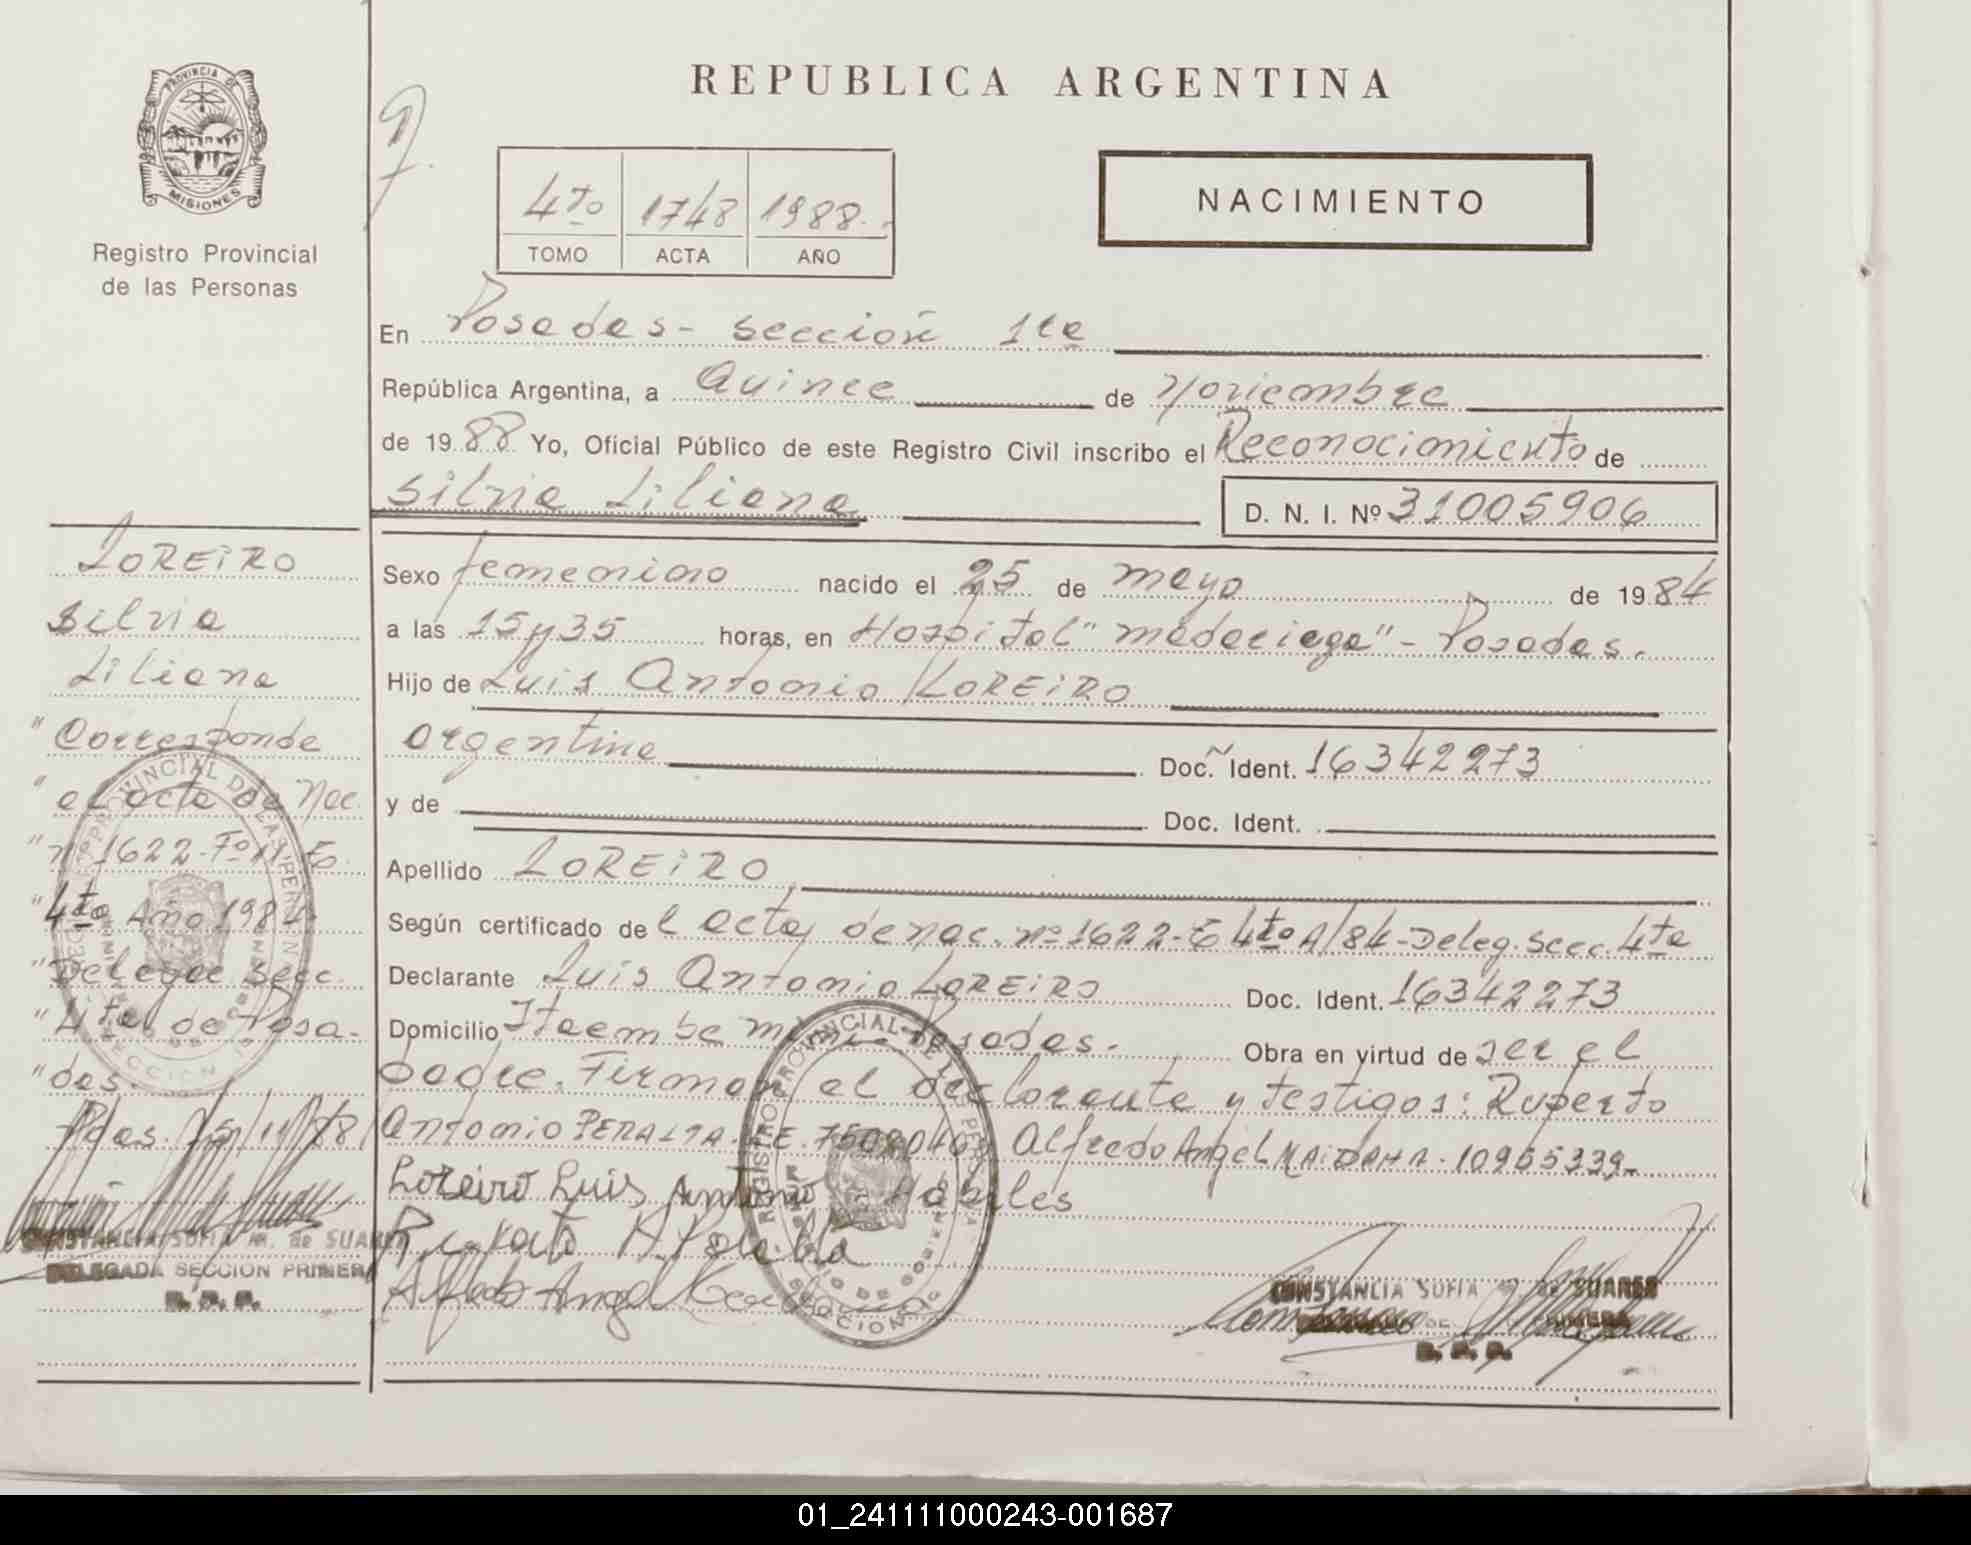 REPUBLICA ARGENTINA
PROVINCIA DE
MISIONES
Registro Provincial
de las Personas
4to 1748 1988.-
TOMO ACTA AÑO
NACIMIENTO
En Posadas - sección 1ra
República Argentina, a Quince de Noviembre
de 1988 Yo, Oficial Público de este Registro Civil inscribo el Reconocimiento de
Silvia Liliana D. N. I. Nº 31005906
Sexo femenino nacido el 25 de mayo de 1984
a las 15 y 35 horas, en Hospital "Madariaga" - Posadas.
Hijo de Luis Antonio LOREIRO
argentina Doc. Ident. 16342273
y de Doc. Ident.
Apellido LOREIRO
Según certificado de l acta de nac. nº 1622-T 4to A/84-Deleg. Secc. 4ta
Declarante Luis Antonio LOREIRO Doc. Ident. 16342273
Domicilio Itaembe mini Posadas. Obra en virtud de ser el
padre. Firman el declarante y testigos: Ruperto
Antonio PERALTA. Alfredo Angel MAIDANA. 10965339-
Loreiro Luis Antonio Habiles
Alfredo Angel
CONSTANCIA SOFIA M. de SUAREZ
R. P. P.
LOREIRO
Silvia
Liliana
"Corresponde
"al acta de Nac.
"nº 1622-Fº 11-To
"4to Año 1984
"Delegac Secc.
"4ta de Posa-
"das.
Pdas. 15/11/88
CONSTANCIA SOFIA M. de SUAREZ
DELEGADA SECCION PRIMERA
R. P. P.
01_241111000243-001687